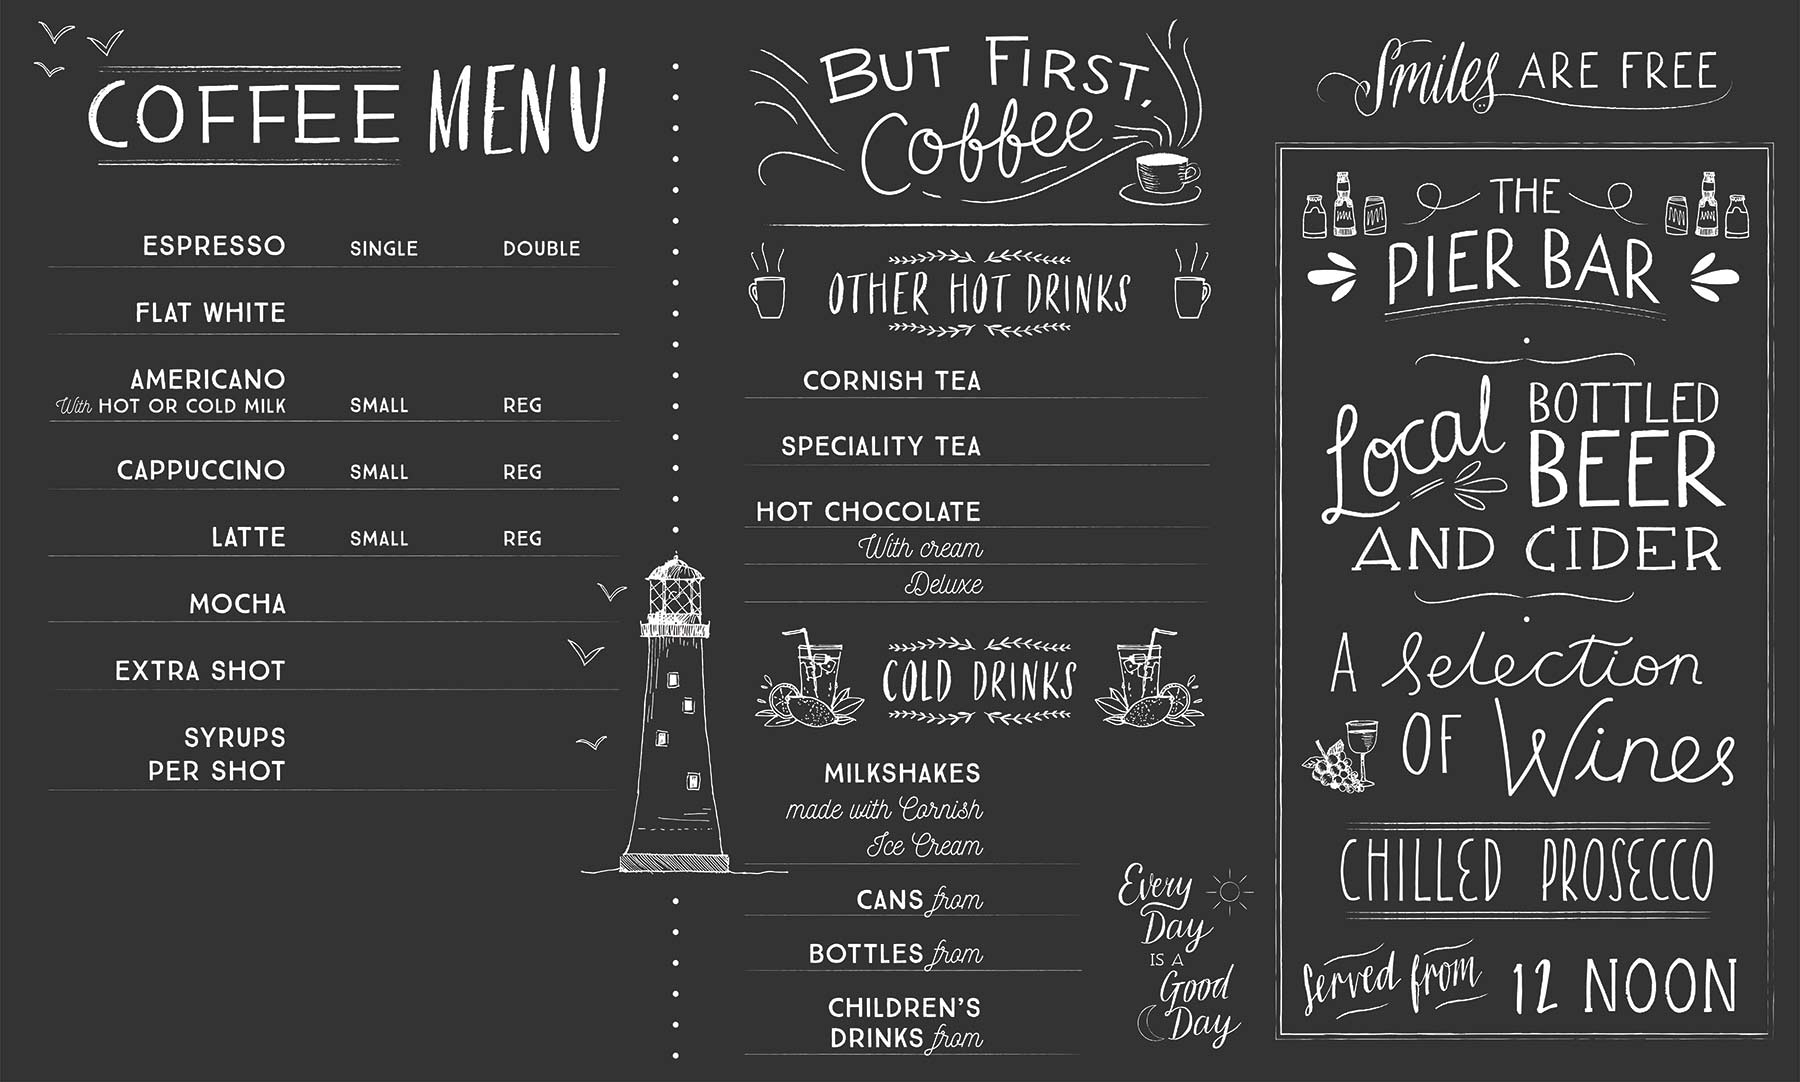 COFFEE MENU
ESPRESSO SINGLE DOUBLE
FLAT WHITE
AMERICANO
With HOT OR COLD MILK SMALL REG
CAPPUCCINO SMALL REG
LATTE SMALL REG
MOCHA
EXTRA SHOT
SYRUPS
PER SHOT
BUT FIRST,
Coffee
OTHER HOT DRINKS
CORNISH TEA
SPECIALITY TEA
HOT CHOCOLATE
With cream
Deluxe
COLD DRINKS
MILKSHAKES
made with Cornish
Ice Cream
CANS from
BOTTLES from
CHILDREN'S
DRINKS from
Every
Day
IS A
Good
Day
Smiles ARE FREE
THE
PIER BAR
Local BOTTLED
BEER
AND CIDER
A Selection
OF Wines
CHILLED PROSECCO
Served from 12 NOON